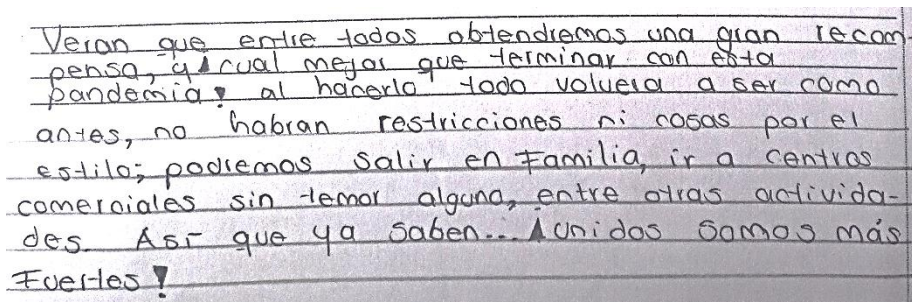 Veran que entre todos obtendremos una gran recom
pensa, y cual mejor que terminar con esta
pandemia, al hacerlo todo volvera a ser como
antes, no habran restricciones ni cosas por el
estilo; podremos salir en Familia, ir a centros
comerciales sin temor alguno, entre otras activida-
des. Así que ya saben... ¡Unidos somos más
Fuertes!